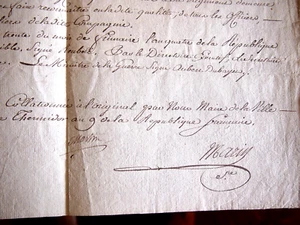 faire reconnaître en ladite qualité, de tous les Officiers
de la dite Compagnie,
trente du mois de Frimaire l'an quatre de la République
Signé Reubell, Par le Directoire Exécutif, le Secrétaire
Le Ministre de la Guerre Signé Aubert Dubayet,
Collationné à l'original par Nous Maire de la Ville
Thermidor an 9e de la République française.